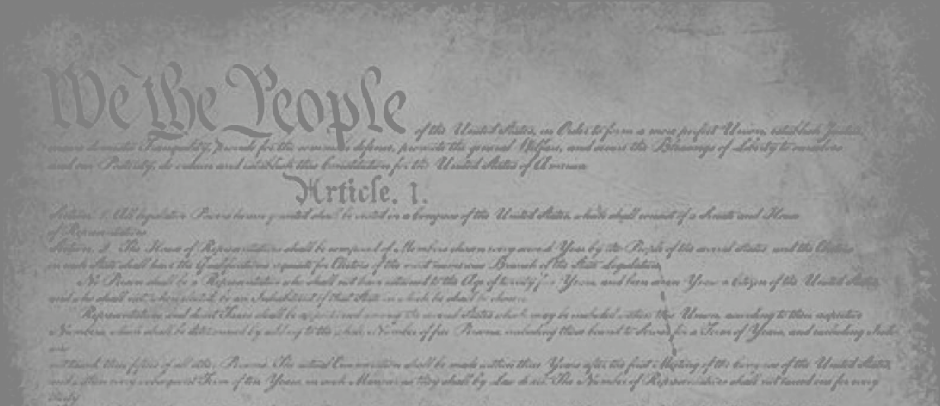 We the People of the United States, in Order to form a more perfect Union, establish Justice,
domestic Tranquility, provide for the common defense, promote the general Welfare, and secure the Blessings of Liberty to ourselves
and our Posterity, do ordain and establish this Constitution for the United States of America
Article. I.
Section. 1. All legislative Powers herein granted shall be vested in a Congress of the United States, which shall consist of a Senate and House
of Representatives.
Section. 2. The House of Representatives shall be composed of Members chosen every second Year by the People of the several States, and the Electors
in each State shall have the Qualifications requisite for Electors of the most numerous Branch of the State Legislature
No Person shall be a Representative who shall not have attained to the Age of twenty five Years, and been seven Years a Citizen of the United States
and who shall not, when elected, be an Inhabitant of that State in which he shall be chosen.
Representatives and direct Taxes shall be apportioned among the several States which may be included within this Union, according to their respective
Numbers, which shall be determined by adding to the whole Number of free Persons, including those bound to Service for a Term of Years, and excluding
three fifths of all other Persons. The actual Enumeration shall be made within three Years after the first Meeting of the Congress of the United States,
and within every subsequent Term of ten Years, in such Manner as they shall by Law direct. The Number of Representatives shall not exceed one for every
thirty